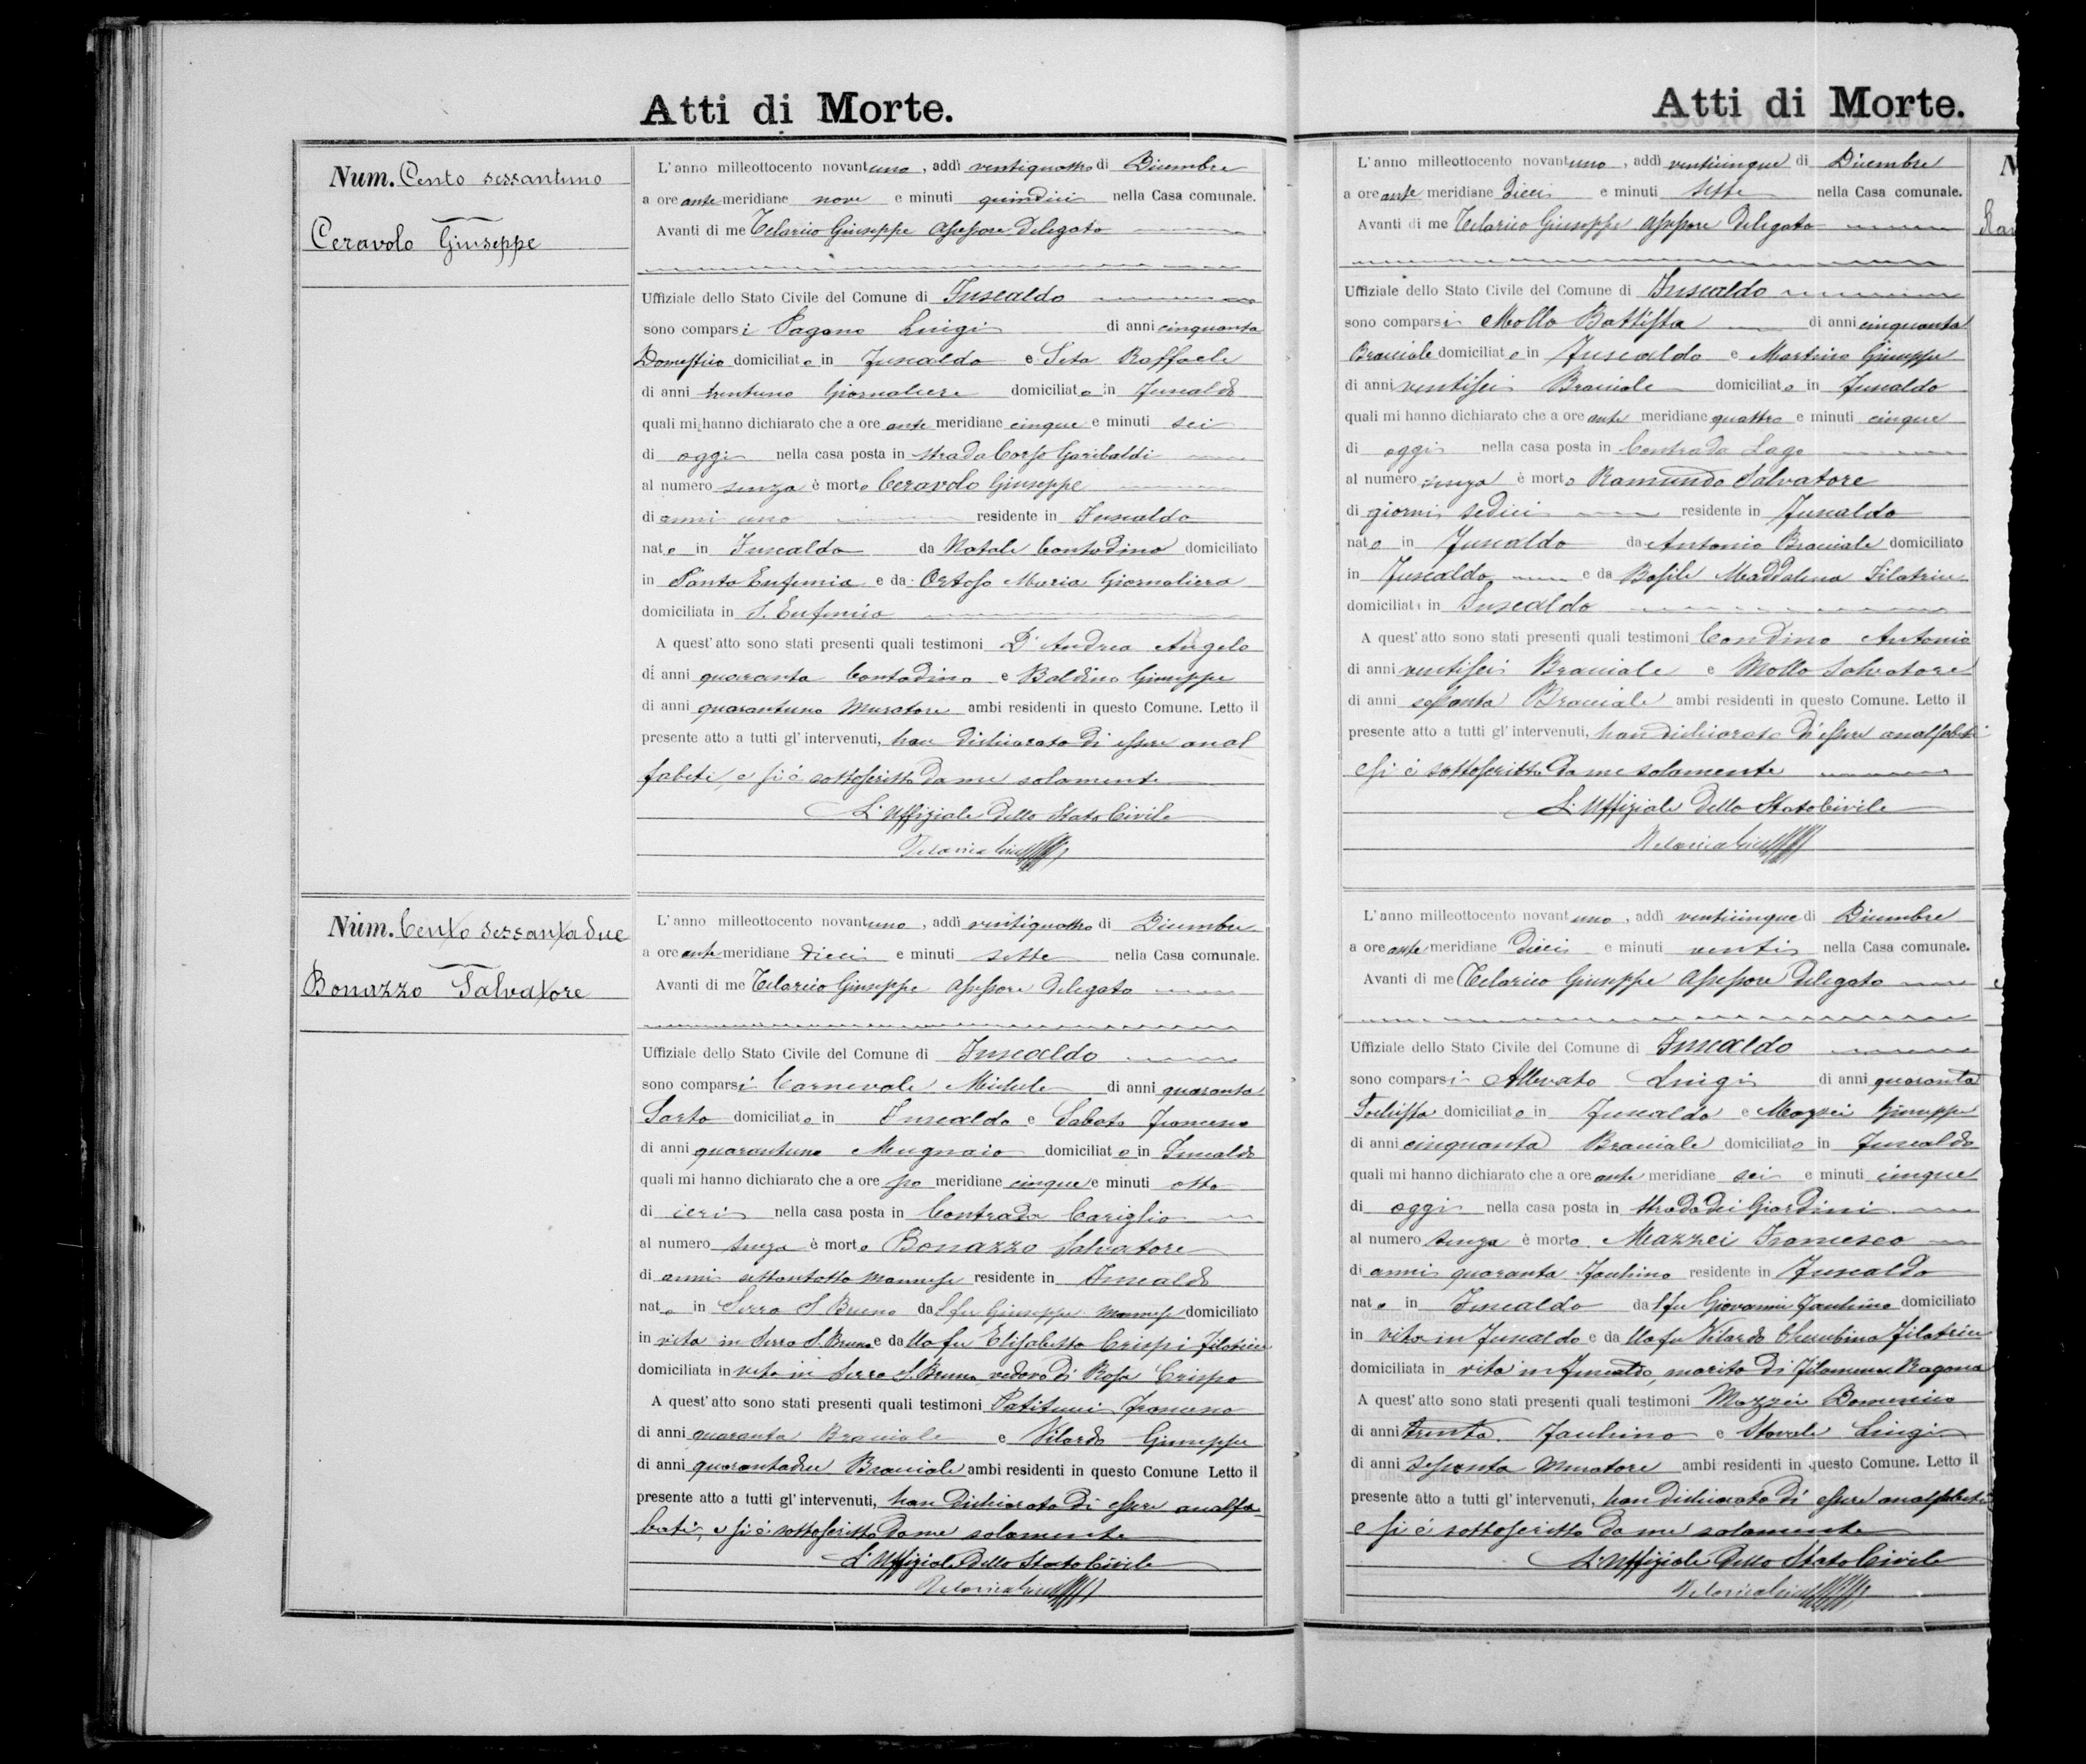 Atti di Morte.
Num. Cento sessantuno
Ceravolo Giuseppe
L'anno milleottocento novantuno, addì ventiquattro di Dicembre
a ore ante meridiane nove e minuti quindici nella Casa comunale.
Avanti di me Telarico Giuseppe Assessore Delegato
Uffiziale dello Stato Civile del Comune di Fuscaldo
sono comparsi Pagano Luigi di anni cinquanta
Domestico domiciliato in Fuscaldo e Seta Raffaele
di anni trentuno Giornaliere domiciliato in Fuscaldo
quali mi hanno dichiarato che a ore ante meridiane cinque e minuti sei
di oggi nella casa posta in strada Corso Garibaldi
al numero senza è morto Ceravolo Giuseppe
di anni uno residente in Fuscaldo
nato in Fuscaldo da Natale Contadino domiciliato
in Santa Eufemia e da Maria Giornaliera
domiciliata in S. Eufemia
A quest'atto sono stati presenti quali testimoni D'Andrea Angelo
di anni quaranta Contadino e Baldino Giuseppe
di anni quarantuno Muratore ambi residenti in questo Comune. Letto il
presente atto a tutti gl'intervenuti, han dichiarato di essere anal
fabeti, e si è sottoscritto da me solamente
L'Uffiziale dello Stato Civile
Num. Cento sessantadue
Bonazzo Salvatore
L'anno milleottocento novantuno, addì ventiquattro di Dicembre
a ore ante meridiane dieci e minuti sette nella Casa comunale.
Avanti di me Telarico Giuseppe Assessore Delegato
Uffiziale dello Stato Civile del Comune di Fuscaldo
sono comparsi Carnevale Michele di anni quaranta
Sarto domiciliato in Fuscaldo e Sabato Francesco
di anni quarantuno Mugnaio domiciliato in Fuscaldo
quali mi hanno dichiarato che a ore po meridiane cinque e minuti otto
di ieri nella casa posta in Contrada Cariglio
al numero senza è morto Bonazzo Salvatore
di anni settantotto residente in Fuscaldo
nato in Serra S. Bruno dal fu Giuseppe domiciliato
in vita in Serra S. Bruno e dalla fu Elisabetta Crispi filatrice
domiciliata in vita in Serra S. Bruno, vedovo di Rosa Crispo
A quest'atto sono stati presenti quali testimoni Patitucci Francesco
di anni quaranta Bracciale e Vilardo Giuseppe
di anni quarantadue Bracciale ambi residenti in questo Comune Letto il
presente atto a tutti gl'intervenuti, han dichiarato di essere analfa-
beti, e si è sottoscritto da me solamente
L'Uffiziale dello Stato Civile
Atti di Morte.
L'anno milleottocento novantuno, addì venticinque di Dicembre
a ore ante meridiane dieci e minuti sette nella Casa comunale.
Avanti di me Telarico Giuseppe Assessore Delegato
Uffiziale dello Stato Civile del Comune di Fuscaldo
sono comparsi Mollo Battista di anni cinquanta
Bracciale domiciliato in Fuscaldo e Martino Giuseppe
di anni ventisei Bracciale domiciliato in Fuscaldo
quali mi hanno dichiarato che a ore ante meridiane quattro e minuti cinque
di oggi nella casa posta in Contrada Lago
al numero senza è morto Ramundo Salvatore
di giorni sedici residente in Fuscaldo
nato in Fuscaldo da Antonio Bracciale domiciliato
in Fuscaldo e da Basile Maddalena Filatrice
domiciliata in Fuscaldo
A quest'atto sono stati presenti quali testimoni Condino Antonio
di anni ventisei Bracciale e Mollo Salvatore
di anni sessanta Bracciale ambi residenti in questo Comune. Letto il
presente atto a tutti gl'intervenuti, han dichiarato di essere analfabeti
e si è sottoscritto da me solamente
L'Uffiziale dello Stato Civile
L'anno milleottocento novantuno, addì venticinque di Dicembre
a ore ante meridiane dieci e minuti venti nella Casa comunale.
Avanti di me Telarico Giuseppe Assessore Delegato
Uffiziale dello Stato Civile del Comune di Fuscaldo
sono comparsi Allevato Luigi di anni quaranta
domiciliato in Fuscaldo e Mazzei Giuseppe
di anni cinquanta Bracciale domiciliato in Fuscaldo
quali mi hanno dichiarato che a ore ante meridiane sei e minuti cinque
di oggi nella casa posta in strada dei Giardini
al numero senza è morto Mazzei Francesco
di anni quaranta Facchino residente in Fuscaldo
nato in Fuscaldo dal fu Giovanni Facchino domiciliato
in vita in Fuscaldo e dalla fu Vilardo Cherubina filatrice
domiciliata in vita in Fuscaldo, marito di Filomena Ragona
A quest'atto sono stati presenti quali testimoni Mazzei Domenico
di anni trenta Facchino e Stavale Luigi
di anni sessanta Muratore ambi residenti in questo Comune. Letto il
presente atto a tutti gl'intervenuti, han dichiarato di essere analfabeti
e si è sottoscritto da me solamente
L'Uffiziale dello Stato Civile